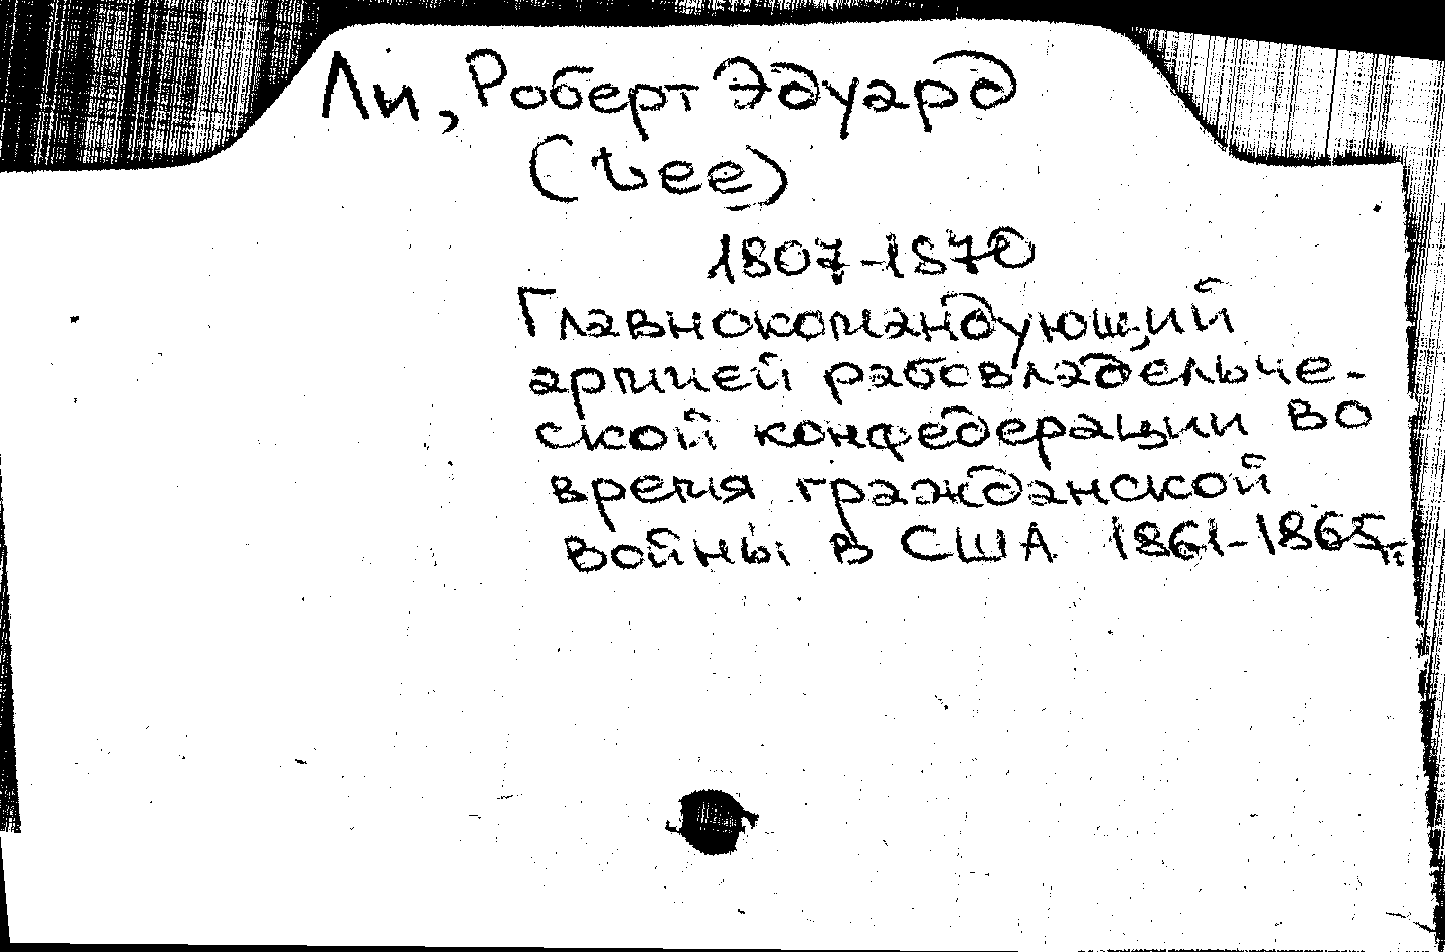 Ли, Роберт Эдуард
(Lee)
1807-1870
Главнокомандующий
армией рабовладельче-
ской конфедерации во
время гражданской
войны в США 1861-1865гг.